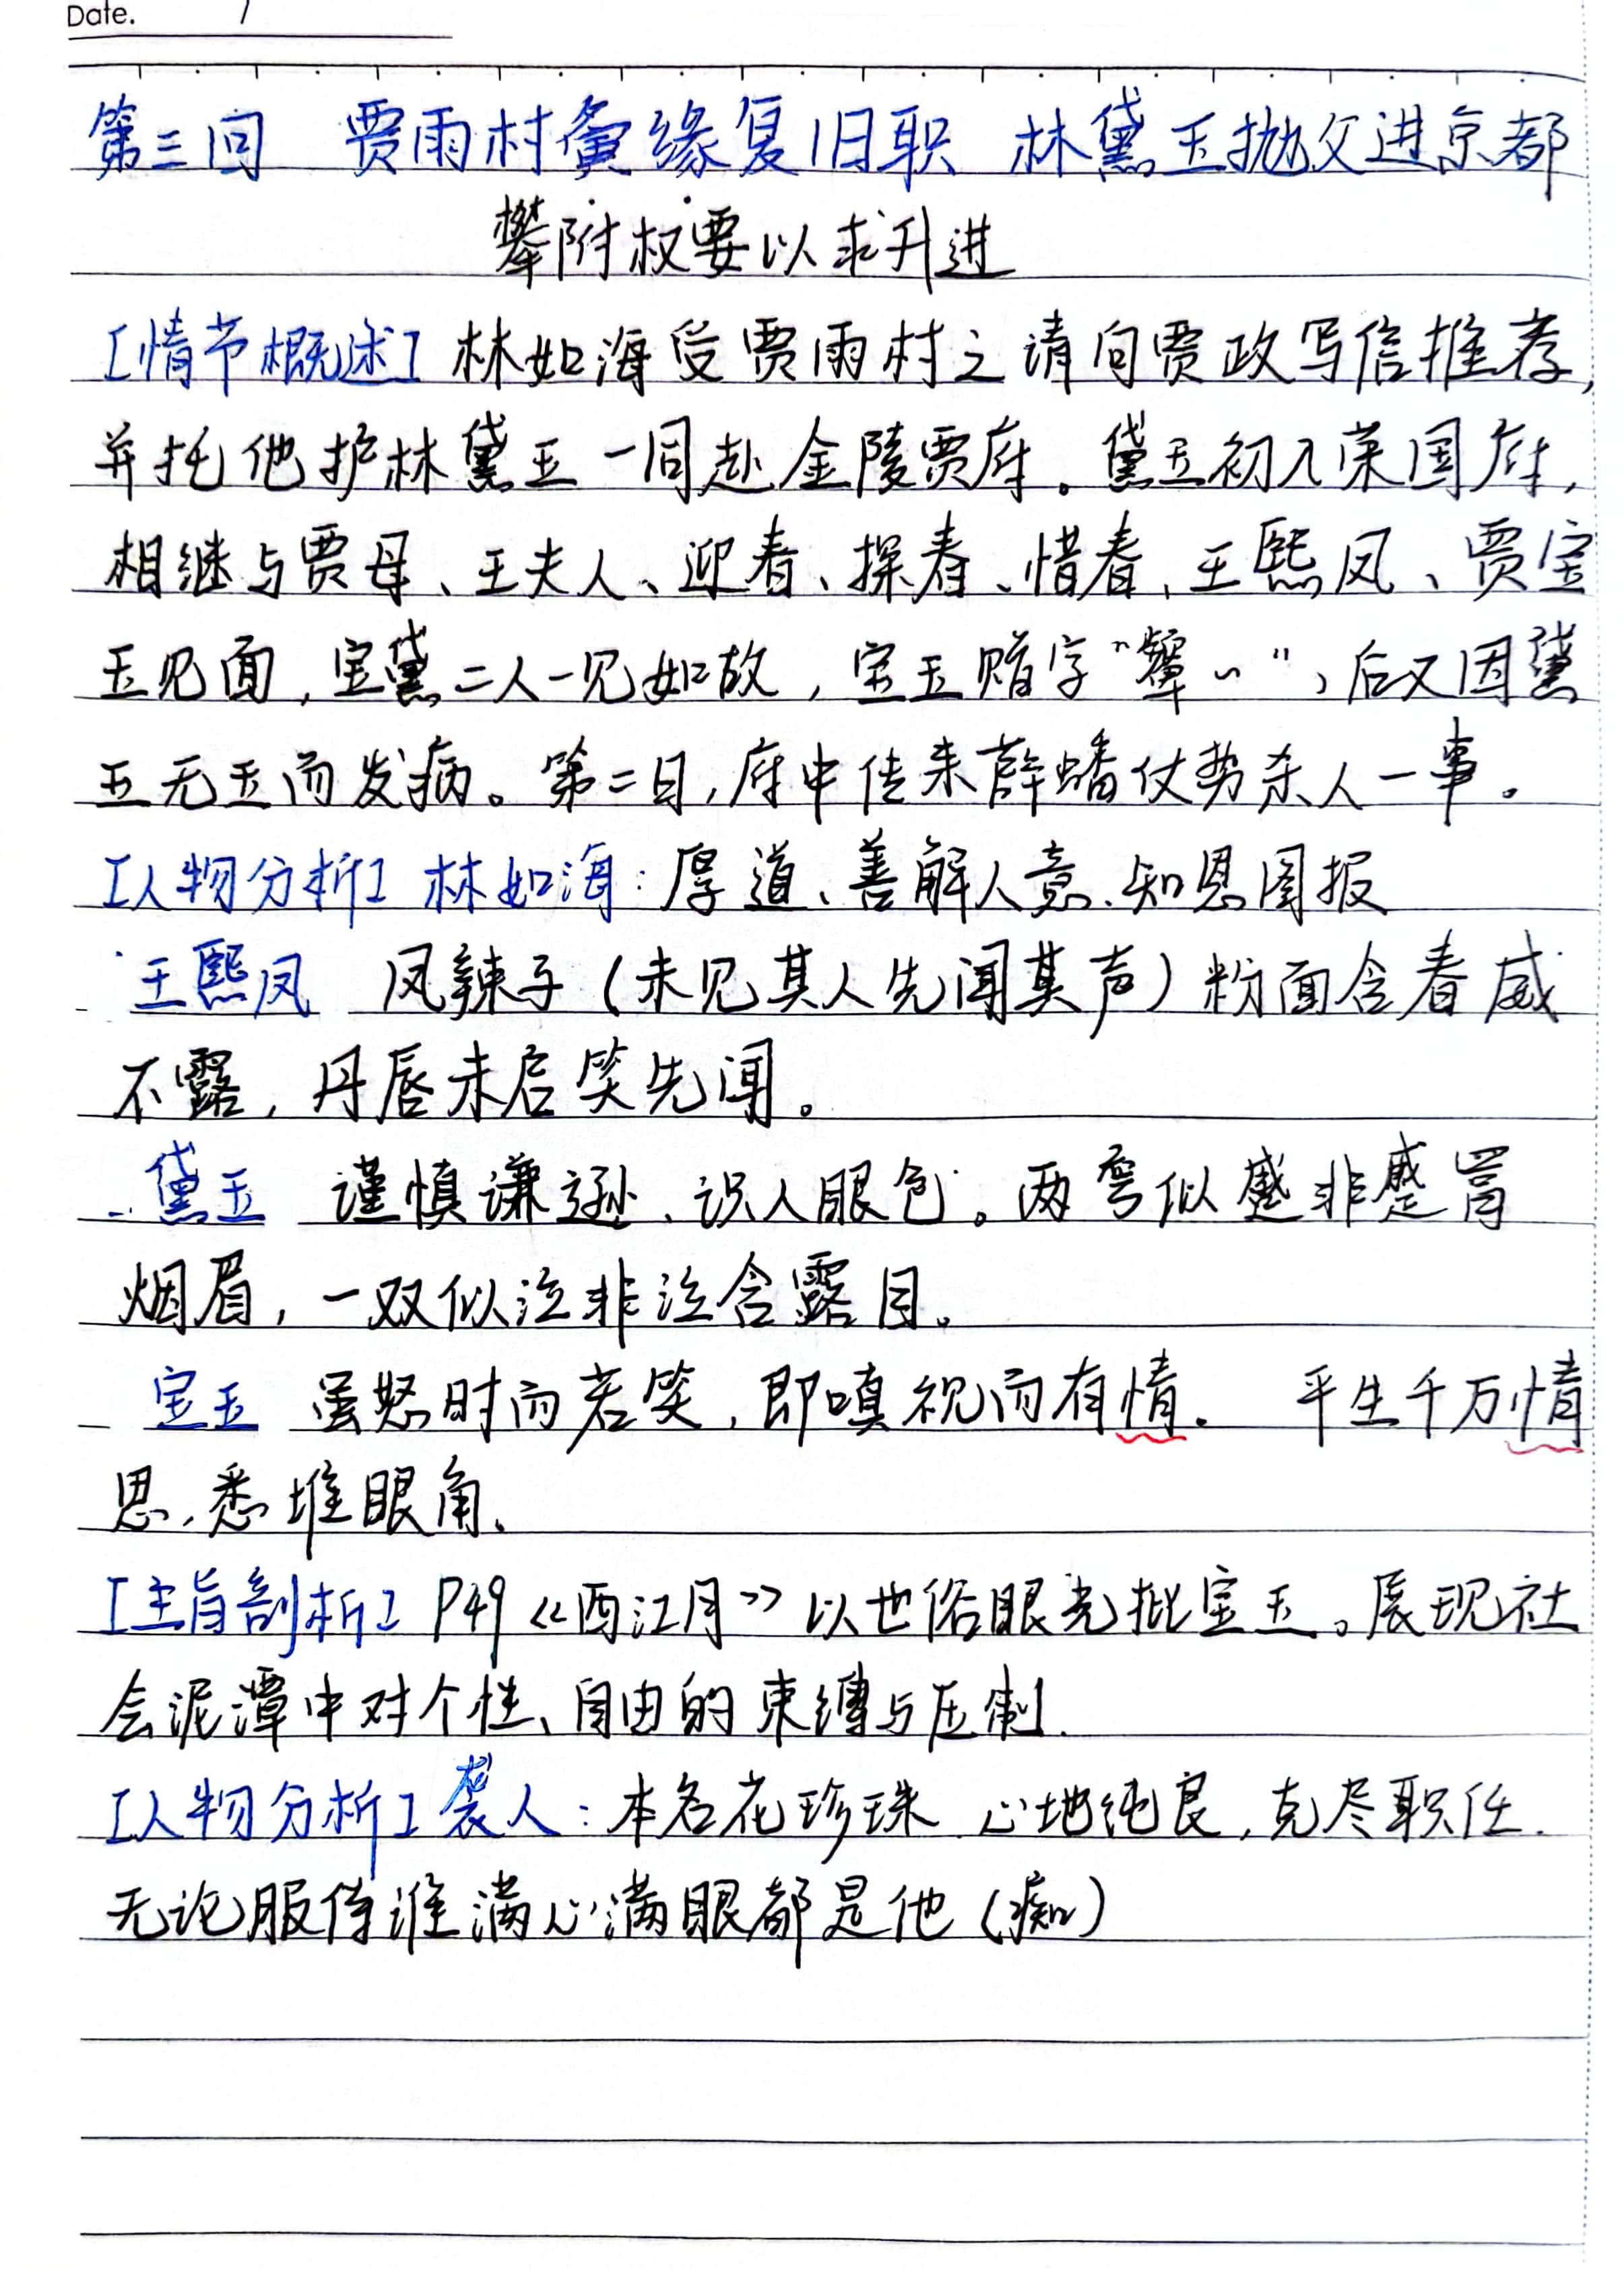 Date. /
第三回 贾雨村夤缘复旧职 林黛玉抛父进京都
攀附权要以求升进
[情节概述] 林如海受贾雨村之请向贾政写信推荐,
并托他护林黛玉一同赴金陵贾府。黛玉初入荣国府,
相继与贾母、王夫人、迎春、探春、惜春、王熙凤、贾宝
玉见面,宝黛二人一见如故,宝玉赠字“颦〃”,后又因黛
玉无玉而发病。第二日,府中传来薛蟠仗势杀人一事。
[人物分析] 林如海:厚道、善解人意、知恩图报
王熙凤 凤辣子(未见其人先闻其声)粉面含春威
不露,丹唇未启笑先闻。
黛玉 谨慎谦逊、识人眼色。两弯似蹙非蹙罥
烟眉,一双似泣非泣含露目。
宝玉 虽怒时而若笑,即嗔视而有情。 平生千万情
思,悉堆眼角。
[主旨剖析] P49《西江月》以世俗眼光批宝玉。展现社
会泥潭中对个性、自由的束缚与压制.
[人物分析] 袭人:本名花珍珠 心地纯良,克尽职任.
无论服侍谁满心满眼都是他(痴)